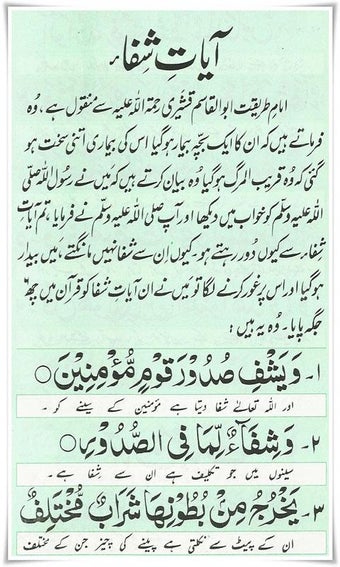 آیاتِ شِفاء
امامِ طریقت ابو القاسم قشیری رحمۃ اللہ علیہ سے منقول ہے، وُہ
فرماتے ہیں کہ ان کا ایک بچّہ بیمار ہو گیا اس کی بیماری اتنی سخت ہو
گئی کہ وُہ قریب المرگ ہو گیا وُہ بیان کرتے ہیں کہ مَیں نے رسُول اللہ صلّی
اللہ علیہ وسلّم کو خواب میں دیکھا اور آپ صلی اللہ علیہ وسلّم نے فرمایا، تم آیاتِ
شِفاء سے کیوں دُور رہتے ہو۔ کیوں اِن سے شفا نہیں مانگتے، مَیں بیدار
ہو گیا اور اس پر غور کرنے لگا تو مَیں نے ان آیاتِ شفا کو قرآن میں چھ ۶
جگہ پایا۔ وُہ یہ ہیں:
۱- وَیَشْفِ صُدُوْرَ قَوْمٍ مُّؤْمِنِیْنَ ○
اور اللہ تعالیٰ شفا دیتا ہے مؤمنین کے سینے کو -
۲- وَشِفَآءٌ لِّمَا فِی الصُّدُوْرِ ○
سینوں میں جو تکلیف ہے ان سے شفا ہے۔
۳- یَخْرُجُ مِنْۢ بُطُوْنِهَا شَرَابٌ مُّخْتَلِفٌ
ان کے پیٹ سے نکلتی ہے پینے کی چیز جن کے مختلف